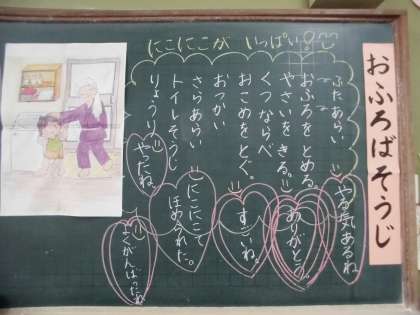 おふろばそうじ
にこにこが いっぱい
ふたあらい
やる気あるね
おふろを とめる。
やさいをきる。
ありがとう。
くつならべ
おこめをとぐ。
すごいね。
おつかい
さらあらい
にこにこて
ほめられた。
トイレそうじ
りょうり
やったね。
よくがんばったね